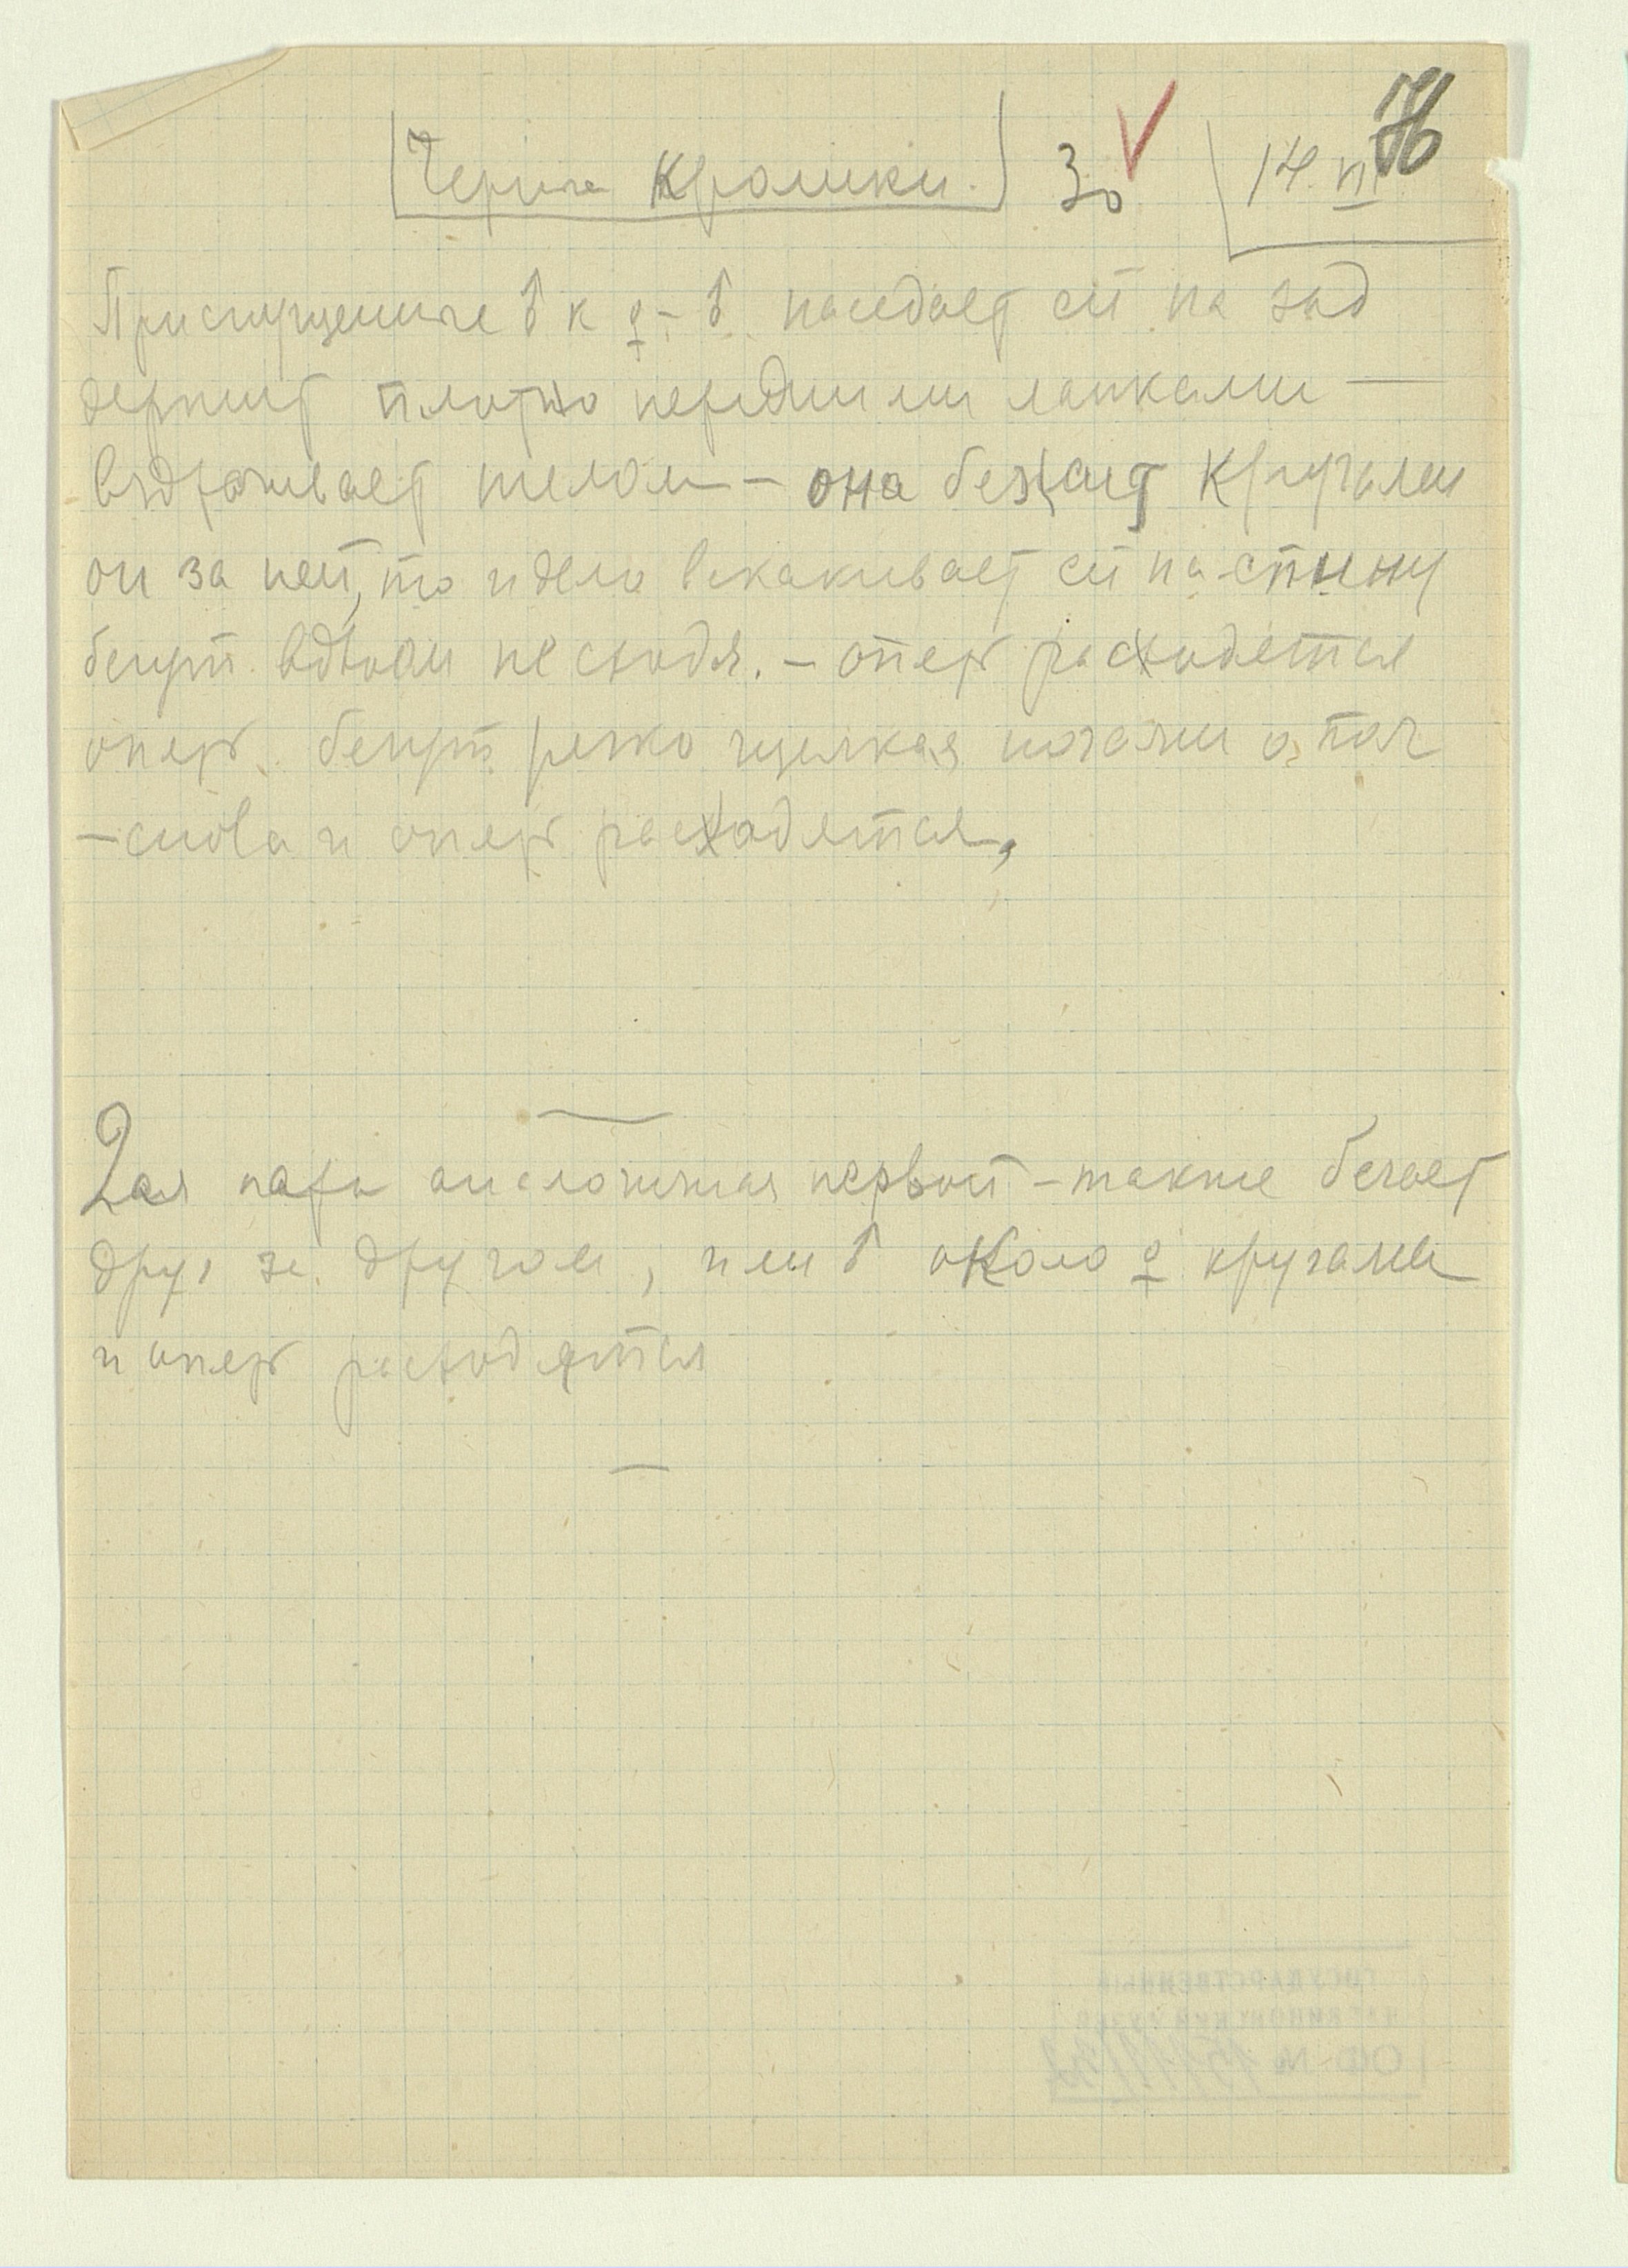 Черные Кролики. 30 14.VI 76
При спущении ♂ к ♀ – ♂ наседает ей на зад
держит плотно передними лапками —
вздрагивает телом – она бежит кругами
он за ней, то и дело вскакивает ей на спину
бегут вдвоем не сходя. – опять расходятся
опять бегут резко щелкая ногами о пол
– снова и опять расходятся,
2ая пара аналогичная первой – также бегает
друг за другом, или ♂ около ♀ кругами
и опять расходятся
ГОСУДАРСТВЕННЫЙ
ДАРВИНОВСКИЙ МУЗЕЙ
ОФ №